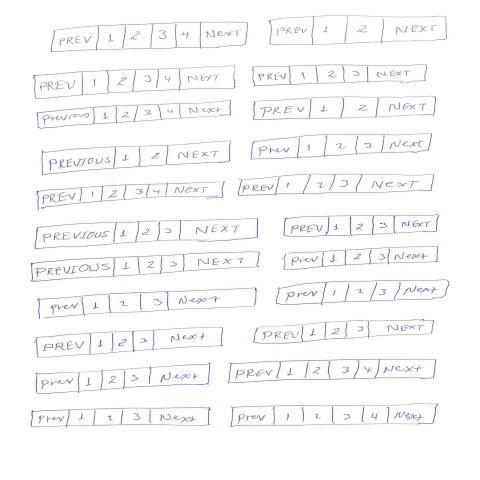 PREV 1 2 3 4 NEXT
PREV 1 2 NEXT
PREV 1 2 3 4 NEXT
PREV 1 2 3 NEXT
Previous 1 2 3 4 Next
PREV 1 2 NEXT
PREVIOUS 1 2 NEXT
Prev 1 2 3 Next
PREV 1 2 3 4 NEXT
PREV 1 2 3 NEXT
PREVIOUS 1 2 3 NEXT
PREV 1 2 3 NEXT
PREVIOUS 1 2 3 NEXT
Prev 1 2 3 Next
Prev 1 2 3 Next
Prev 1 2 3 Next
PREV 1 2 3 Next
PREV 1 2 3 NEXT
Prev 1 2 3 Next
PREV 1 2 3 4 Next
Prev 1 2 3 Next
Prev 1 2 3 4 Next